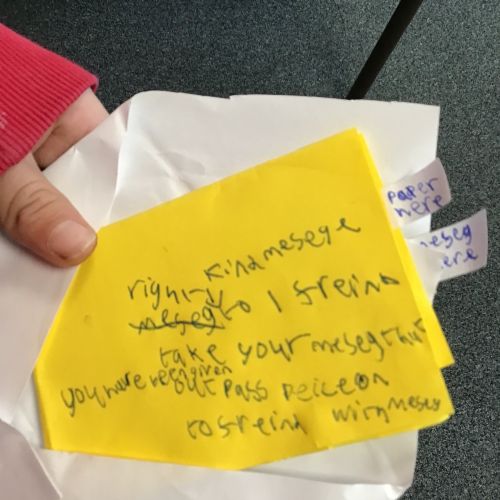 kind mesege
right
meseg to 1 freind
take your meseg that
you have been given
out pass peice on
to freind with meseg
paper
here
meseg
here